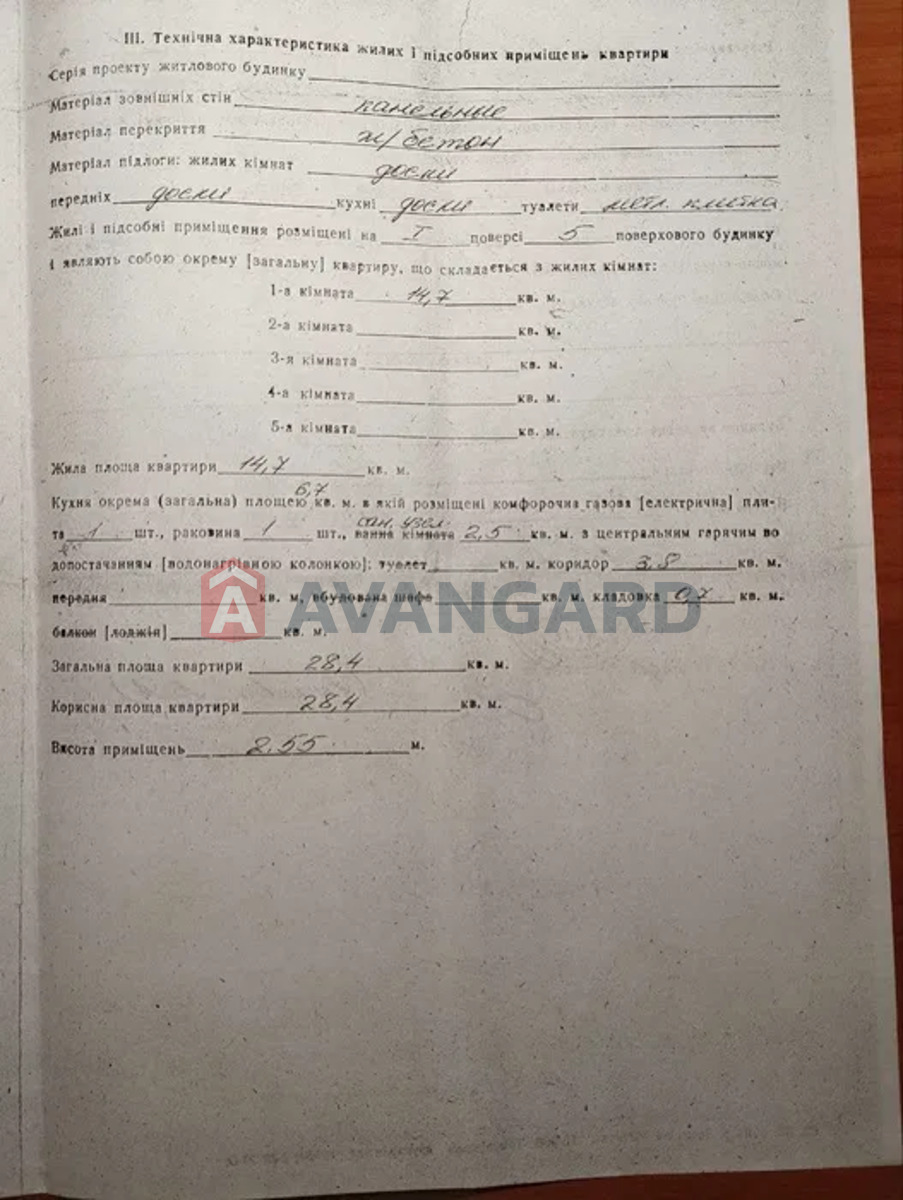 III. Технічна характеристика жилих і підсобних приміщень квартири
Серія проекту житлового будинку
Матеріал зовнішніх стін панельные
Матеріал перекриття ж/бетон
Матеріал підлоги: жилих кімнат доски
передніх доски кухні доски туалети метл. плитка
Жилі і підсобні приміщення розміщені на I поверсі 5 поверхового будинку
і являють собою окрему [загальну] квартиру, що складається з жилих кімнат:
1-а кімната 14,7 кв. м.
2-а кімната кв. м.
3-я кімната кв. м.
4-а кімната кв. м.
5-а кімната кв. м.
Жила площа квартири 14,7 кв. м.
Кухня окрема (загальна) площею 6,7 кв. м. в якій розміщені комфорочна газова [електрична] пли-
та 1 шт., раковина 1 шт., ванна кімната сан. узел 2,5 кв. м. з центральним гарячим во
допостачанням [водонагрівною колонкою]; туалет кв. м. коридор 3,8 кв. м.
передня кв. м. вбудована шафа кв. м. кладовка 0,7 кв. м.
балкон [лоджія] кв. м.
AVANGARD
Загальна площа квартири 28,4 кв. м.
Корисна площа квартири 28,4 кв. м.
Висота приміщень 2.55 м.